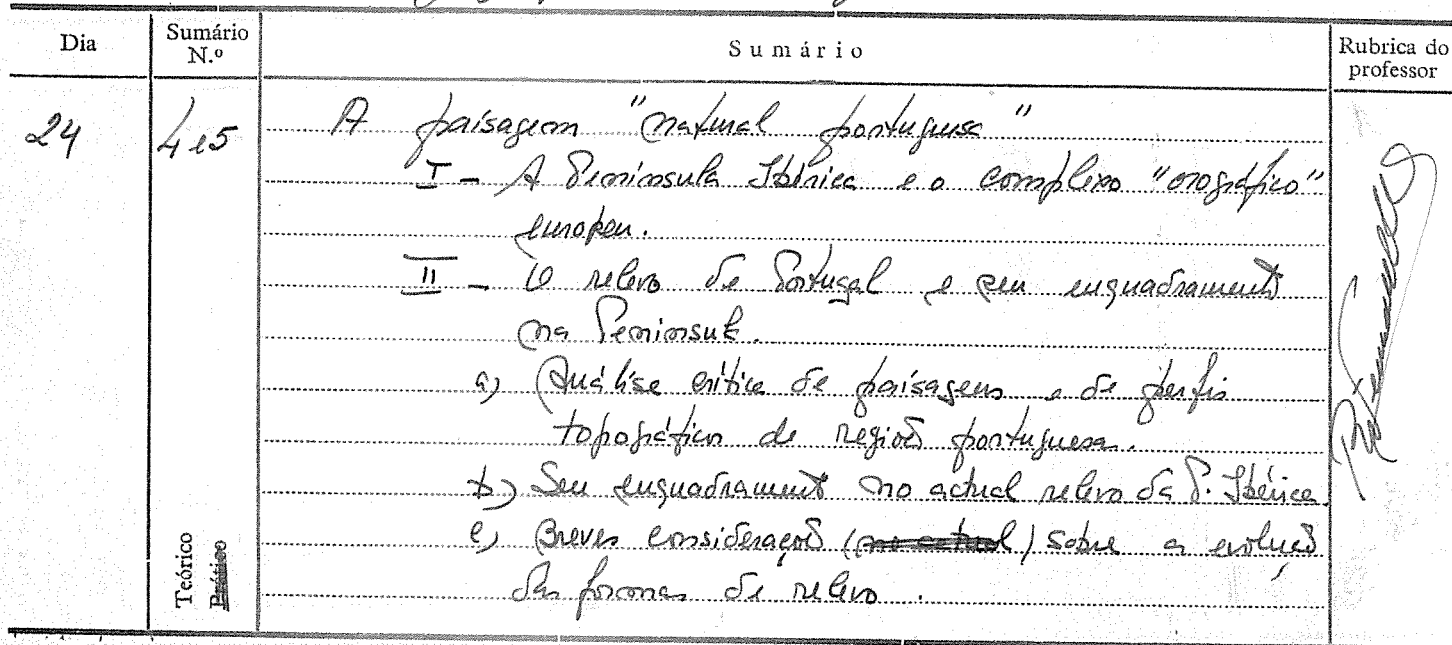 Dia
Sumário N.º
Sumário
Rubrica do professor
24
4 e 5
A paisagem "natural portuguesa"
I - A Península Ibérica e o complexo "orográfico"
europeu.
II - O relevo de Portugal e seu enquadramento
na Península.
a) Análise crítica de paisagens e de perfis
topográficos de regiões portuguesas.
b) Seu enquadramento no actual relevo da P. Ibérica
c) Breves considerações (no actual) sobre a evolução
das formas de relevo.
Teórico
Prático